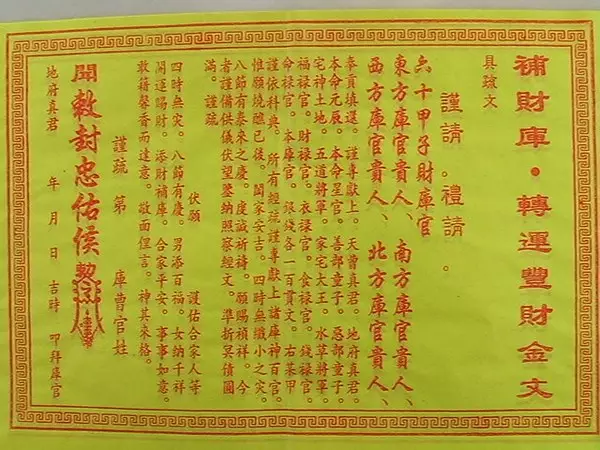 補財庫·轉運豐財金文
具疏文
謹請。禮請。
六十甲子財庫官
東方庫官貴人、南方庫官貴人、
西方庫官貴人、北方庫官貴人、
奉貢填還。謹專獻上。天曹真君。地府真君。
本命元辰。本命星官。善部童子。惡部童子。
宅神土地。五道將軍。家宅大王。水草將軍。
福祿官。財祿官。衣祿官。食祿官。錢祿官。
命祿官。本庫官。銀錢各一百貫文。右某甲
謹依科典。所有經疏謹專獻上諸庫神百官。
惟願燒醮已後。闔家安吉。四時無纖小之灾。
八節有泰來之慶。度誠祈禱。願賜禎祥。今
者謹備供儀伏望鑒納照察經文。準折冥債圓
滿。謹疏
伏願護佑合家人等
四時無灾。八節有慶。男添百福。女納千祥
開運賜財。添財補庫。合家平安。事事如意。
敢藉馨香而達意。敬面俚言。神其來格。
謹疏 第 庫曹官姓
開敕封忠佑侯
地府真君 年 月 日 吉時 叩拜庫官